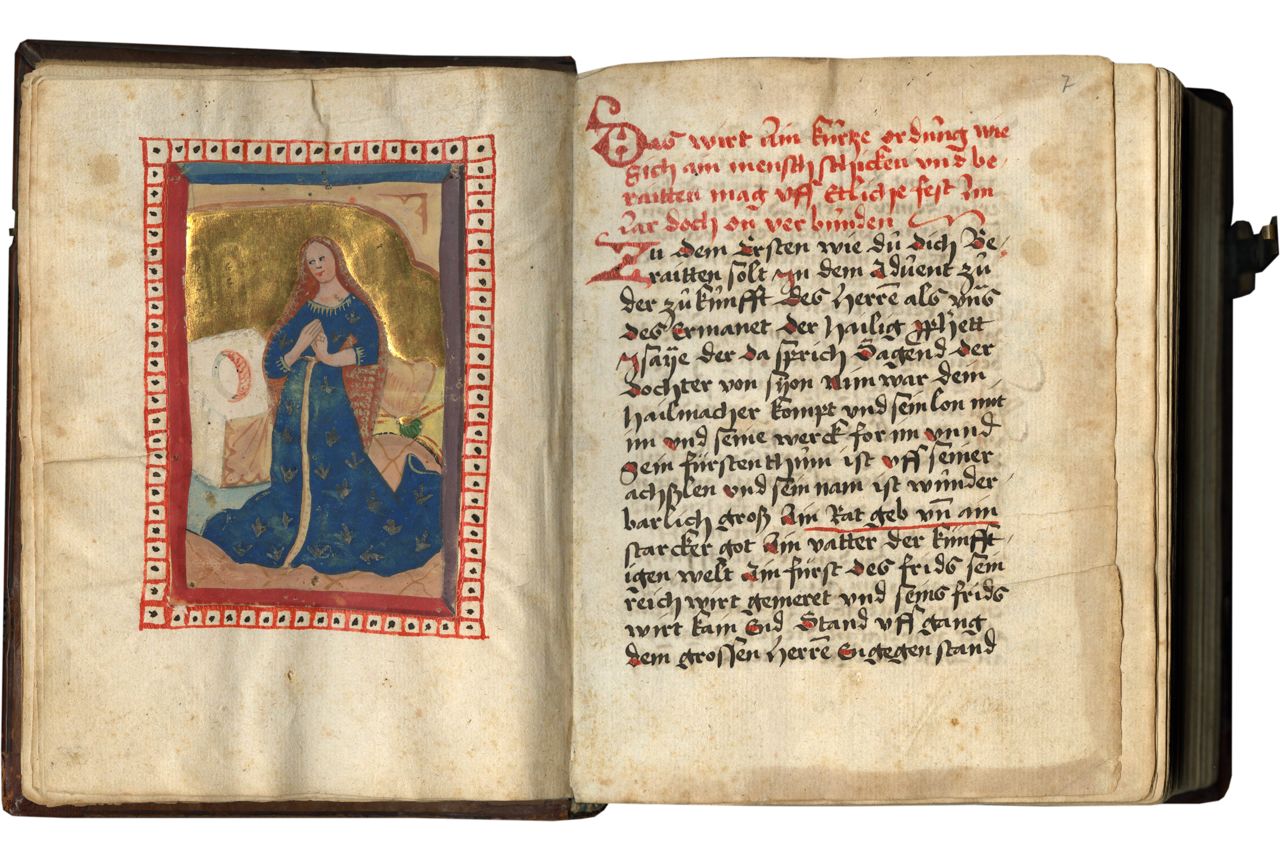 7
Das wirt Ain kürtze ordnüng wie
Sich ain mensch schicken vnd be
raitten mag vff Ettliche fest Im
iar doch on verbinden
Zu dem Ersten wie dü dich Be
raitten solt In dem Aduent zü
der zükünfft des Herren als vns
des Ermanet der Hailig pphett
ysaÿe der da sprich Sagend der
dochter von sÿon Nim war dein
hailmacher kompt vnd sein lon mit
im vnd seine werck for im vnnd
Sein fürstenthüm ist vff seiner
achßlen vnd sein nam ist wünder
barlich groß Ain Rat geb vn̄ ain
starcker got Ain vatter der künfft
igen welt Ain fürst des frids sein
reich wirt gemeret vnd seins frids
wirt kain End Stand vff gang
dem grossen Herrē Engegen stand